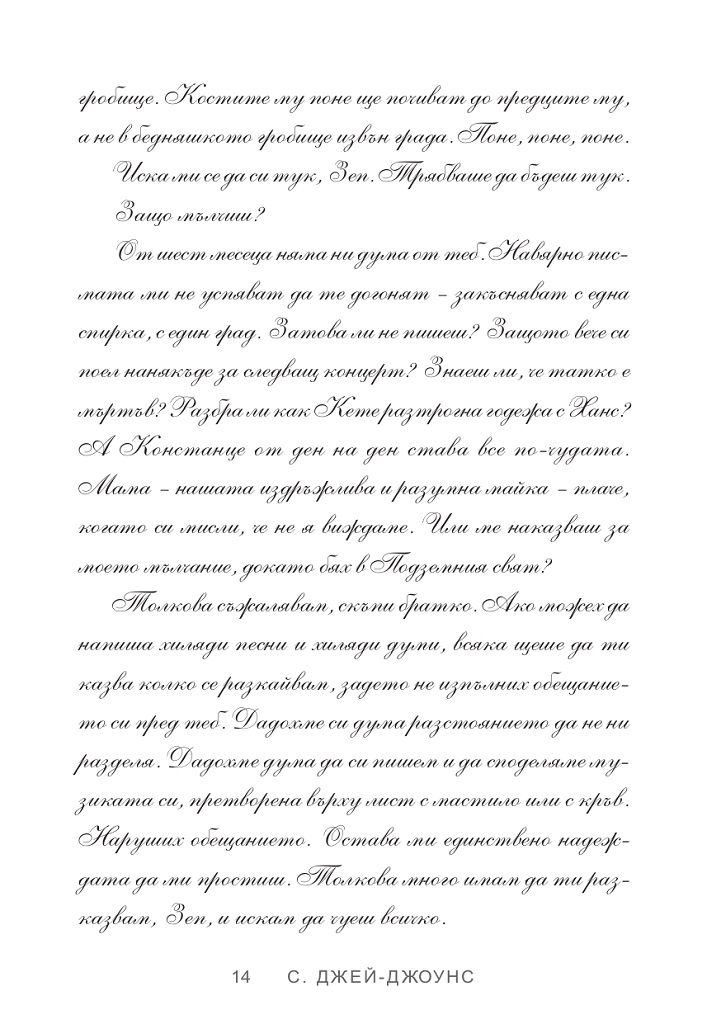 гробище. Костите му поне ще почиват до предците му,
а не в бедняшкото гробище извън града. Поне, поне, поне.
Иска ми се да си тук, Зеп. Трябваше да бъдеш тук.
Защо мълчиш?
От шест месеца няма ни дума от теб. Навярно пис-
мата ми не успяват да те догонят – закъсняват с една
спирка, с един град. Затова ли не пишеш? Защото вече си
поел нанякъде за следващ концерт? Знаеш ли, че татко е
мъртъв? Разбра ли как Кете разтрогна годежа с Ханс?
А Констанце от ден на ден става все по-чудата.
Мама – нашата издръжлива и разумна майка – плаче,
когато си мисли, че не я виждаме. Или ме наказваш за
моето мълчание, докато бях в Подземния свят?
Толкова съжалявам, скъпи братко. Ако можех да
напиша хиляди песни и хиляди думи, всяка щеше да ти
казва колко се разкайвам, задето не изпълних обещание-
то си пред теб. Дадохме си дума разстоянието да не ни
разделя. Дадохме дума да си пишем и да споделяме му-
зиката си, претворена върху лист с мастило или с кръв.
Наруших обещанието. Остава ми единствено надеж-
дата да ми простиш. Толкова много имам да ти раз-
казвам, Зеп, и искам да чуеш всичко.
14 С. ДЖЕЙ-ДЖОУНС